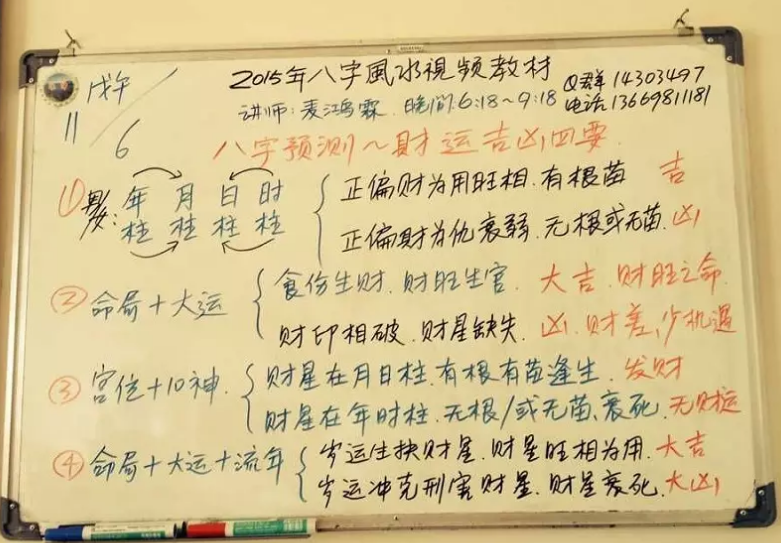 戊午
11/6
2015年八字風水視频教材
Q群 14303497
讲师:麦鸿霖.晚间:6:18～9:18
电话:13669811181
八字预测～财运吉凶四要
①男女: 年柱 月柱 日柱 时柱
正偏财为用旺相.有根苗 吉
正偏财为仇衰弱.无根或无苗.凶
②命局+大运
食伤生财.财旺生官. 大吉.财旺之命.
财印相破.财星缺失. 凶.财差,少机遇
③宫位+10神.
财星在月日柱.有根有苗逢生. 发财
财星在年时柱.无根/或无苗、衰死.无财运
④命局+大运+流年
岁运生扶财星.财星旺相为用.大吉
岁运冲克刑害财星.财星衰死.大凶